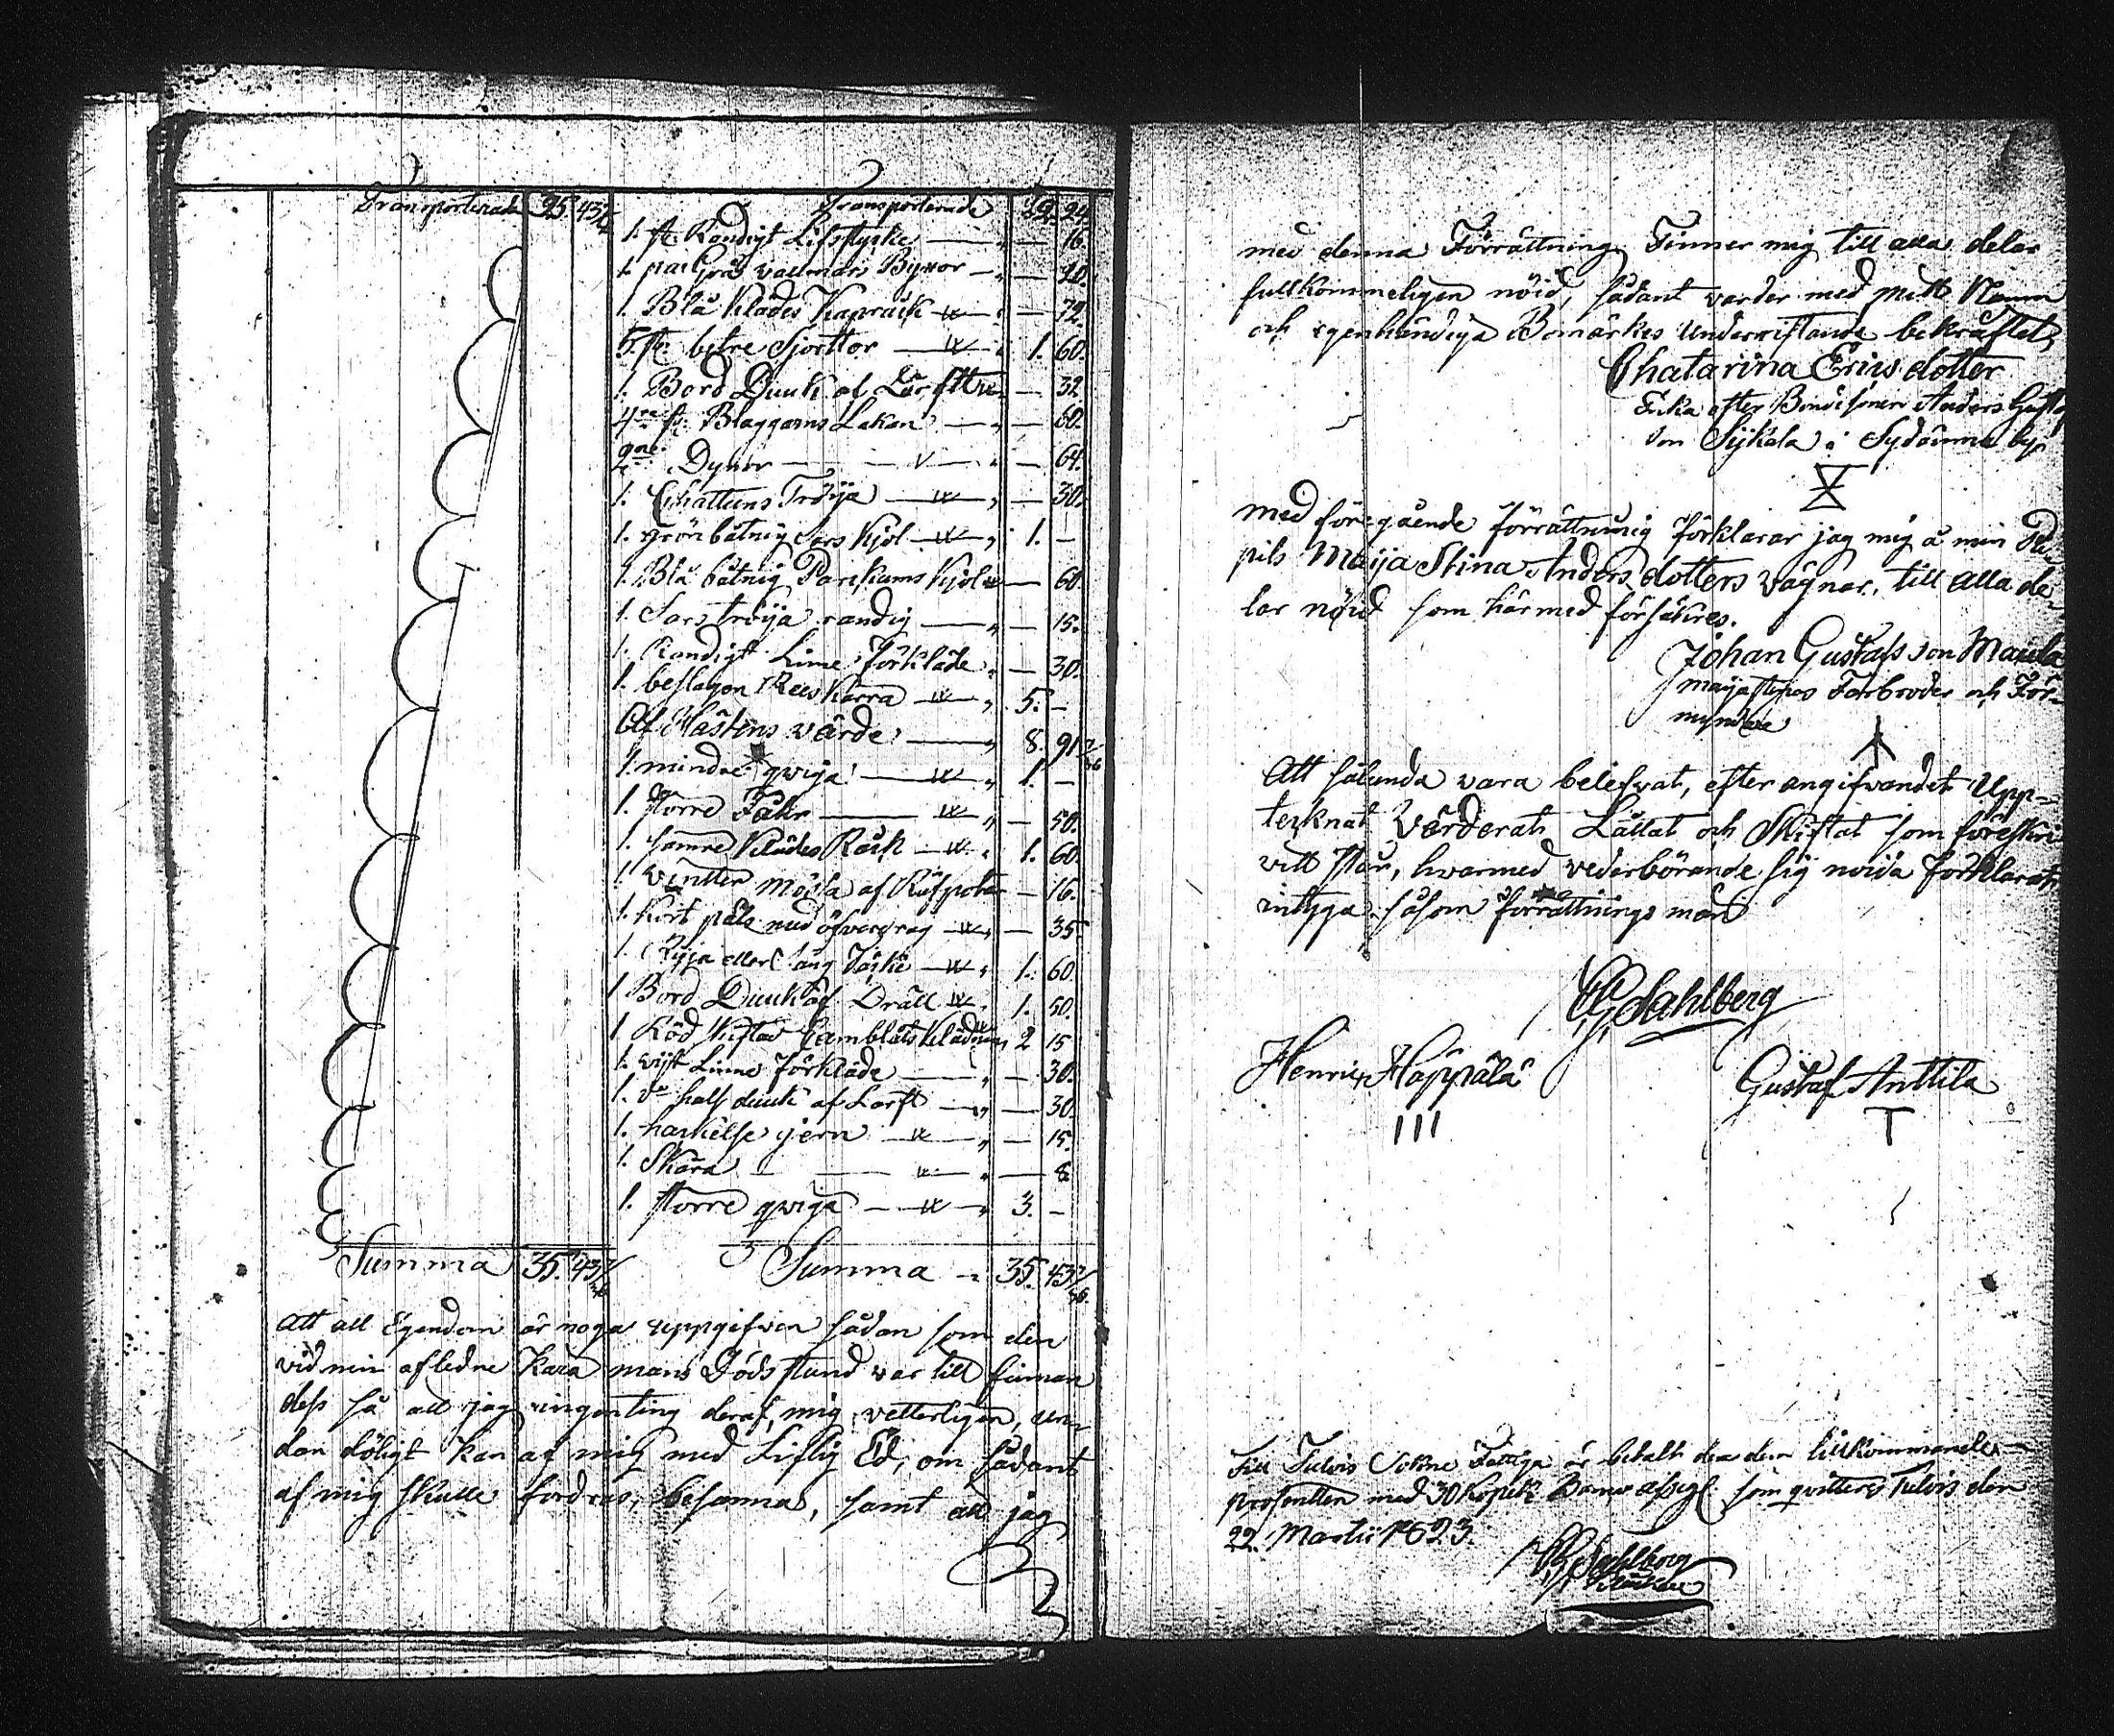 Transporterade 35. 43 7/
Transporterade 22. 24.
1. st. Randigt Lifstycke — „ — 16.
1. par Grå vallmars Byxor — „ — 20.
1. Blå Klädes Kapråck — „ — 72.
5. st. bettre Sjorttor — „ 1. 60.
1. Bord Duuk af Lärftt — 32.
4ra st. Blaggarns Lakan — „ — 80.
2ne Dynor — „ — 64.
1. Chattuns Tröija — „ — 30.
1. grön båtnig sars Kjol — „ 1. —
1. Blå båtnig Parkums Kjol — 60.
1. Sars tröija randig — „ — 15.
1. Randigt Linne förkläde „ — 30.
1. beslagen Rees Kärra — „ 5. —
Af Hästens värde — „ 8. 91 7/36
1. mindre qviga — „ 1. —
1. större Fåhr — „ — 50.
1. sämre Klädes Råck — „ 1. 60.
1. Wintter mössa af — 16.
1. Kort päls med öfverdrag — „ — 35.
1. Ryja eller Täcke — „ 1. 60.
1 Bord Duuk af Dräll „ 1. 50.
1 Röd skiftad Camblåts Klädning 2 15
1. vist Linne förkläde — „ — 30.
1. do hals duuk af Lärft — „ — 30
1. hackelse jern — „ — 15.
1. Skära — „ — 8.
1. större qviga — „ 3. —
Summa 35. 43 7/36 Summa — 35. 43 7/36.
Att all Egendom är noga uppgifven sådan som den
vid min aflедne Kära mans Döds stund var till finnan
dess så att jag ingenting deraf, mig vetterligen, un-
dan döligt kan af mig med Liflig Ed, om sådant
af mig skulle fordras, besannas, samt att jag
med denna Förrättning Finner mig till alla delar
fullkommeligen nöid, sådant varder med mitt Namn
och egenhändiga Bomärkes underristande bekräftet
Chatarina Ericsdotter
Enka efter Bondesonen Anders Gustaf
son Sÿkala i Sydänmaa by
Med föregående förrättning förklarar jag mig å min Pu
pils Maija Stina Anders dotters vägnar, till alla de-
lar nöid som härmed försäkres.
Johan Gustafsson Maula
maija stinas Farbroder och För-
myndare
Att sålunda vara belefvat, efter angifvandet Upp-
teknat Värderat Låttat och Skiftat som föreskre
vitt står, hvarmed vederbörande sig nöida förklarat
intyga såsom förrättnings män
Sahlberg
Henric Häppälä
Gustaf Anttila
III
T
Till Tulvis Sokne Fattiga är betalt den dem tillkommande
prosentten med 30 Kopek Banco assign: som qvitteres Tulvis den
22. Martii 1823.
Sahlberg